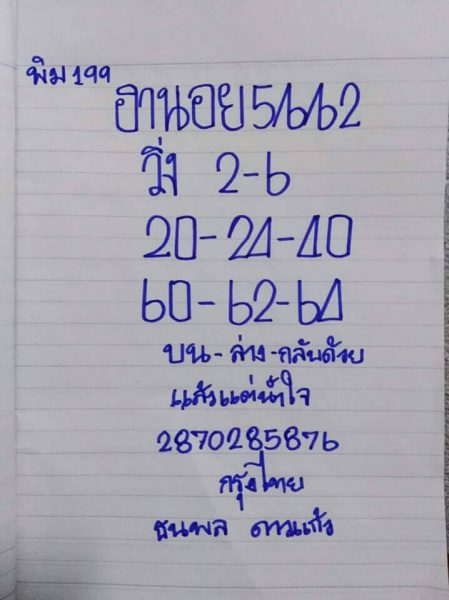 พิม199
ฮานอย5/6/62
วิ่ง 2-6
20-24-40
60-62-64
บน-ล่าง-กลับด้วย
แล้วแต่น้ำใจ
2870285876
กรุงไทย
ธนพล ดาวแก้ว